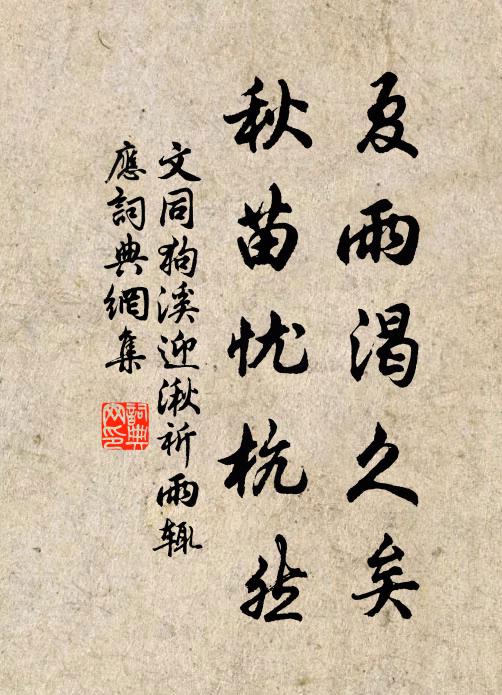 夏雨渴久矣
秋苗忧杭然
文同狗溪迎湫祈雨辄
應詞典網集
詞典网印